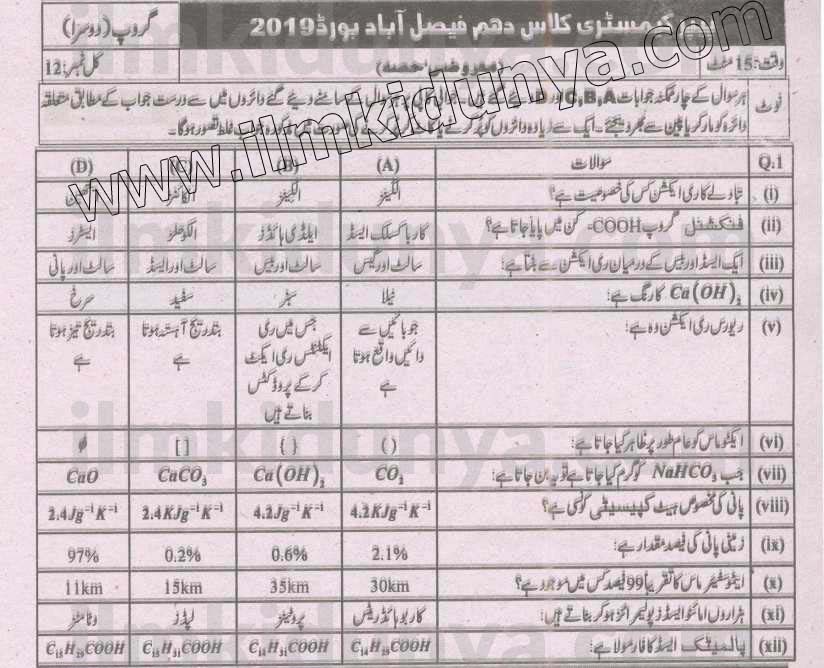 کیمسٹری کلاس دہم فیصل آباد بورڈ 2019 گروپ (دوسرا)
وقت: 15 منٹ (معروضی حصہ) کل نمبر: 12
نوٹ ہر سوال کے چار ممکنہ جوابات C,B,A اور D
دائرہ کو مارکر یا پین سے بھر دیجئے۔ ایک سے زیادہ دائروں کو پُر کرنے غلط تصور ہو گا۔
www.ilmkidunya.com
Q.1 سوالات (A) (B) (C) (D)
(i) تبادلے کا ری ایکشن کس کی خصوصیت ہے؟ الکینز
(ii) فنکشنل گروپ COOH- کن میں پایا جاتا ہے؟ کارباکسلک ایسڈ ایلڈی ہائڈز الکوحلز ایسٹرز
(iii) ایک ایسڈ اور بیس کے درمیان ری ایکشن سے بنتا ہے: سالٹ اور گیس سالٹ اور بیس سالٹ اور ایسڈ سالٹ اور پانی
(iv) Ca(OH)₂ کا رنگ ہے: نیلا سبز سفید سرخ
(v) ریورس ری ایکشن وہ ہے: جو بائیں سے دائیں واقع ہوتا ہے جس میں ری ایکٹنٹس ری ایکٹ کر کے پروڈکٹس بناتے ہیں بتدریج آہستہ ہوتا ہے بتدریج تیز ہوتا ہے
(vi) ایکٹو ماس کو عام طور پر ظاہر کیا جاتا ہے: ( ) { } [ ]
(vii) جب NaHCO₃ کو گرم کیا جاتا ہے تو یہ بن جاتا ہے: CO₂ Ca(OH)₂ CaCO₃ CaO
(viii) پانی کی مخصوص ہیٹ کپیسیٹی کونسی ہے؟ 4.2KJg⁻¹K⁻¹ 4.2Jg⁻¹K⁻¹ 2.4KJg⁻¹K⁻¹ 2.4Jg⁻¹K⁻¹
(ix) زمینی پانی کی فیصد مقدار ہے: 2.1% 0.6% 0.2% 97%
(x) ایٹموسفیئر ماس کا تقریباً 99 فیصد کس میں موجود ہے؟ 30km 35km 15km 11km
(xi) ہزاروں امائنو ایسڈز پولیمرائز ہو کر بناتے ہیں: کاربوہائڈریٹس پروٹینز لپڈز وٹامنز
(xii) پالمیٹک ایسڈ کا فارمولا ہے: C₁₄H₂₅COOH C₁₄H₃₁COOH C₁₅H₃₁COOH C₁₅H₂₉COOH